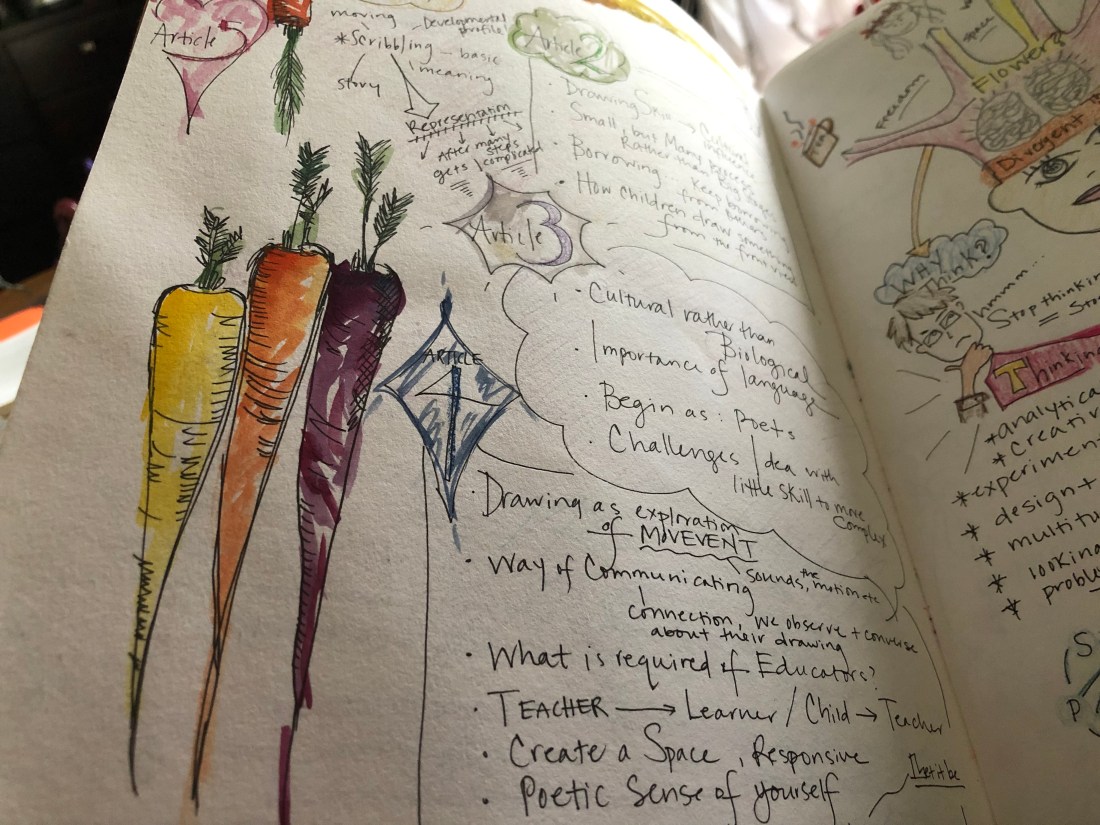 Article 5
moving
- Developmental
profile
*Scribbling - basic
meaning
story
Representation
After many
steps
gets complicated
Article 2
· Drawing Skill → Cultural
influence
· Small, but Many
Rather than Big
· Borrowing
Keep borrowing
from
· How children draw something
from the front view
Article 3
· Cultural rather than
Biological
· Importance of language
· Begin as: Poets
· Challenges
Idea with
little skill to more
complex
ARTICLE
1
· Drawing as exploration
of MOVEVENT
Sounds, the
motion etc
· Way of Communicating
connection, we observe + converse
about their drawing
· What is required of Educators?
· TEACHER → Learner / Child → Teacher
· Create a Space, Responsive
· Poetic Sense of yourself
let it be
space
Flowers
Freedom
Divergent
WHY
Think?
hmmm..
Stop thinkin
=
Sto
Thinkin
*analytica
*Creativ
*experiment
* design+
* multitu
* looking
* probl
S
P